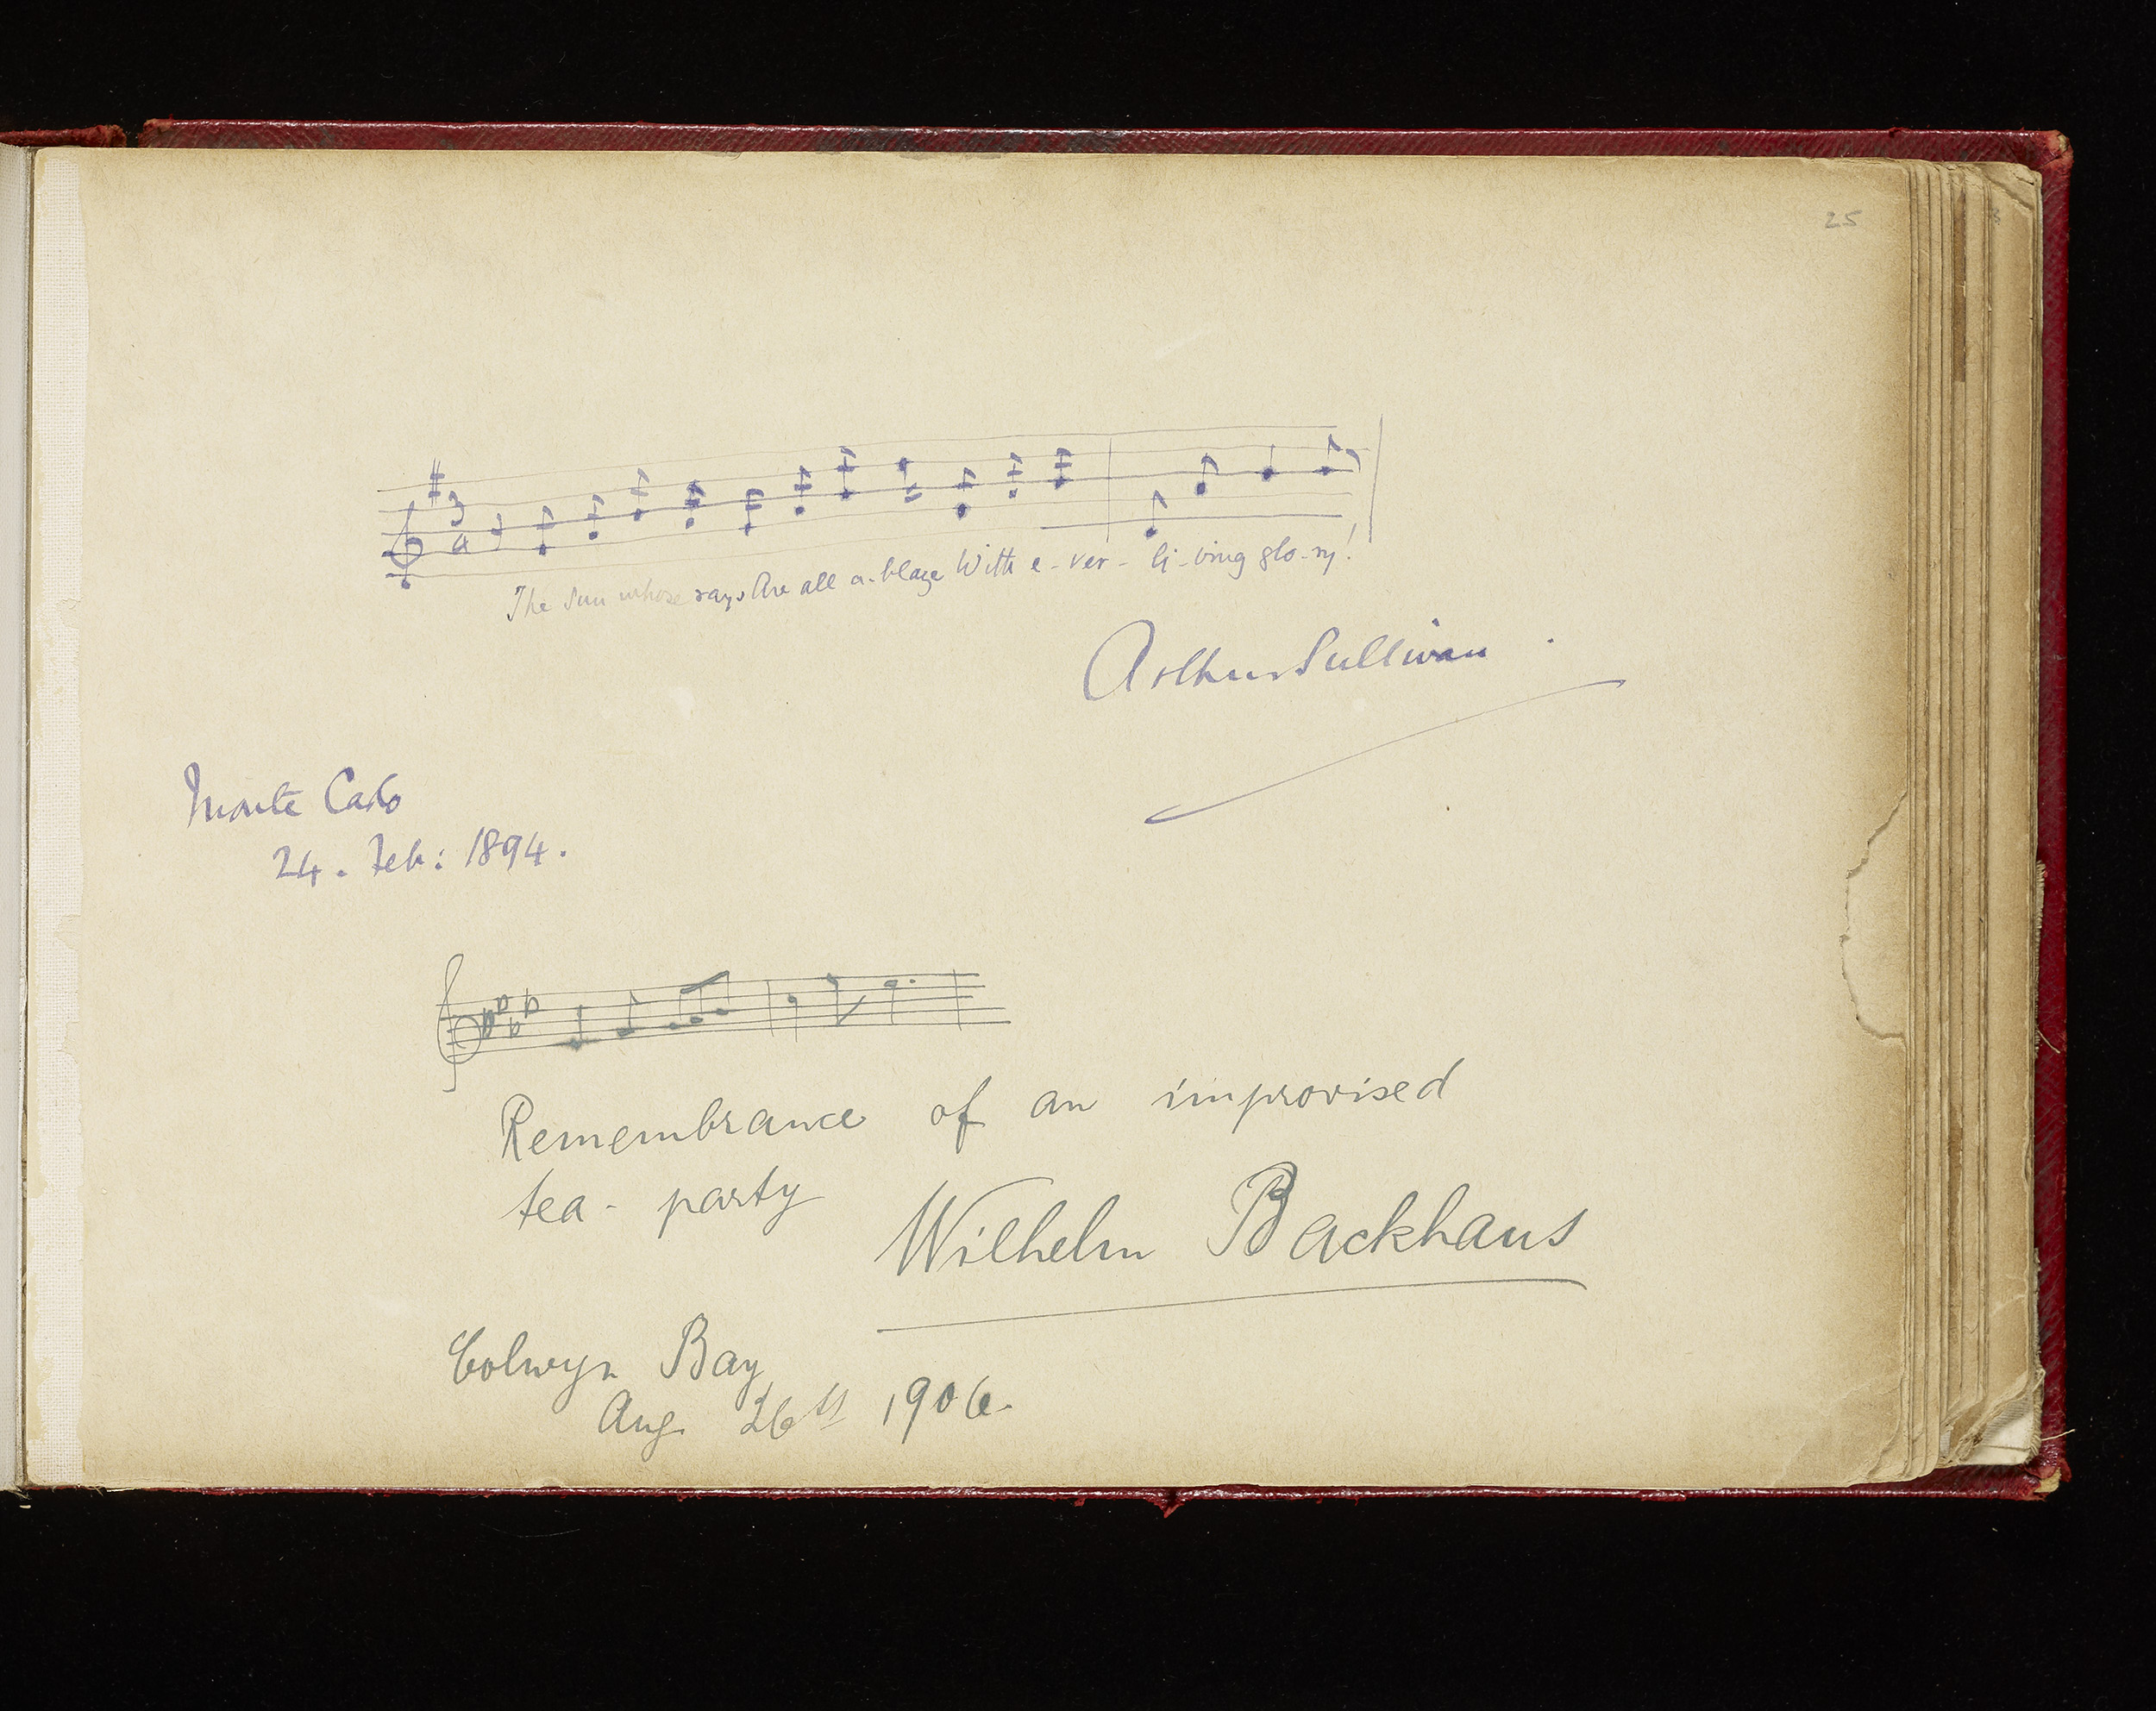 25
3
4
The Sun whose rays Are all a-blaze With e-ver-li-ving glo-ry!
Arthur Sullivan.
Monte Carlo
24. Feb: 1894.
Remembrance of an improvised
tea-party
Wilhelm Backhaus
Colwyn Bay
Aug. 26th 1906.